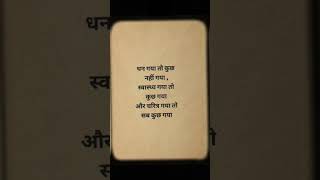 धन गया तो कुछ
नहीं गया ,
स्वास्थ्य गया तो
कुछ गया
और चरित्र गया तो
सब कुछ गया